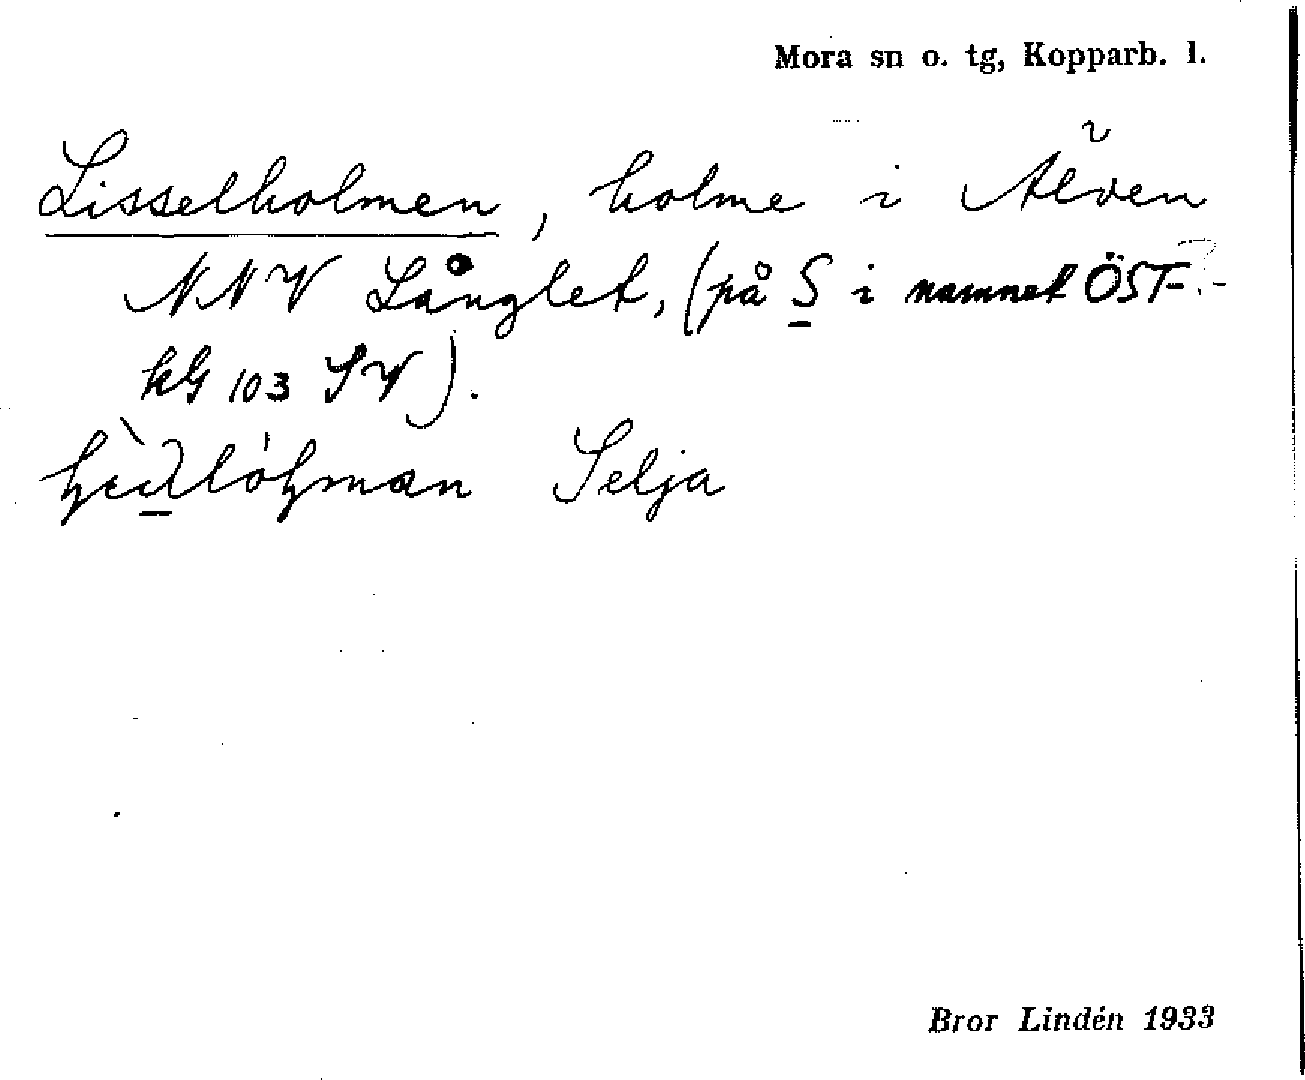 Mora sn o. tg, Kopparb. l.
Lisselholmen, holme i Älven
NNV Långlet, (på S i namnet ÖST-
kG 103 SV).
Selja
Bror Lindén 1933